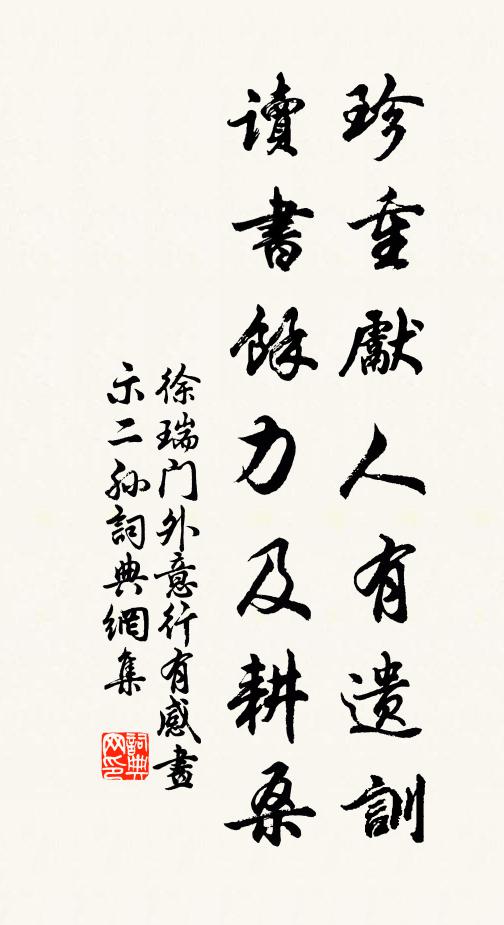 珍重獻人有遺訓
讀書餘力及耕桑
徐瑞门外意行有感畫
示二孫詞典網集
詞典网印